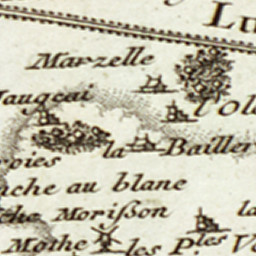 Lu
Marzelle
Jaugeai
l'Oll
la Bailler
roies
ache au blanc
che Morißon
la
Mothe
les P.les V